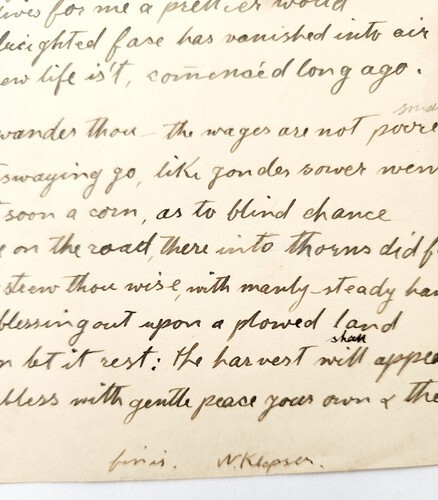 lives for me a prettier world
freighted fase has vanished into air
ew life is't, comencéd long ago.
wander thou – the wages are not poore
swaying go, like yonder sower wen
soon a corn, as to blind chance
e on the road, there into thorns did f
strew thou wise, with manly-steady han
blessing out upon a plowed land
shall
n let it rest: the harvest will appea
bless with gentle peace your own & the
finis.